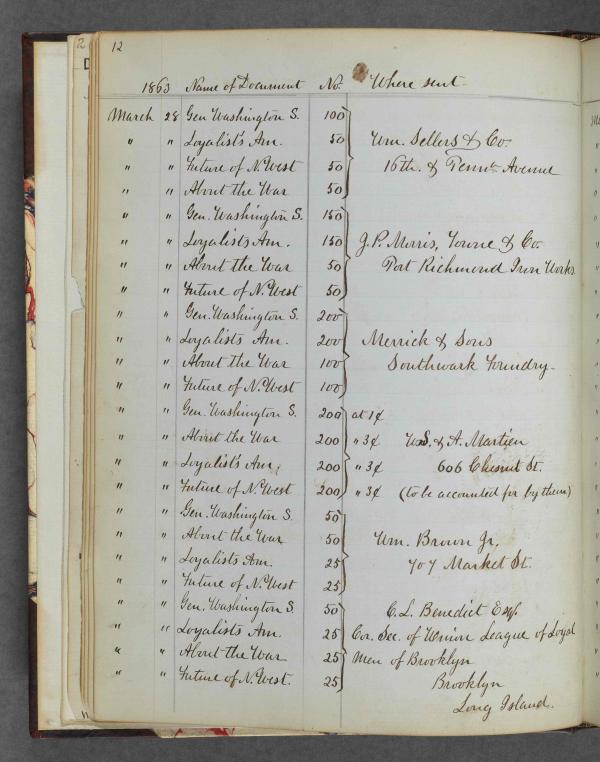 12
1863 Name of Document No. Where sent
March 28 Gen Washington S. 100
" " Loyalist's Am. 50 Wm. Sellers & Co.
" " Future of N. West 50 16th. & Penna Avenue
" " About the War 50
" " Gen. Washington S. 150
" " Loyalists Am. 150 J.P. Morris, Towne & Co
" " About the War 50 Port Richmond Iron Works
" " Future of N. West 50
" " Gen. Washington S. 200
" " Loyalists Am. 200 Merrick & Sons
" " About the War 100 Southwark Foundry
" " Future of N. West 100
" " Gen. Washington S. 200 at 1¢
" " About the War 200 " 3¢ W.S. & A. Martien
" " Loyalist's Am. 200 " 3¢ 606 Chesnut St.
" " Future of N. West 200 " 3¢ (to be accounted for by them)
" " Gen. Washington S. 50
" " About the War 50 Wm. Brown Jr.
" " Loyalists Am. 25 707 Market St.
" " Future of N. West 25
" " Gen. Washington S. 50 C.L. Benedict Esq.
" " Loyalists Am. 25 Cor. Sec. of Union League of Loyal
" " About the War 25 Men of Brooklyn
" " Future of N. West. 25 Brooklyn
Long Island.